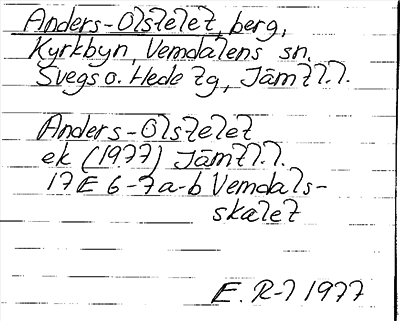 Anders-Olsfelet, berg,
Kyrkbyn, Vemdalens sn.
Svegs o. Hede tg, Jämtl.l.
Anders-Olsfelet
ek (1977) Jämtl.l.
17E 6-7a-b Vemdals-
skalet
E. R-l 1977